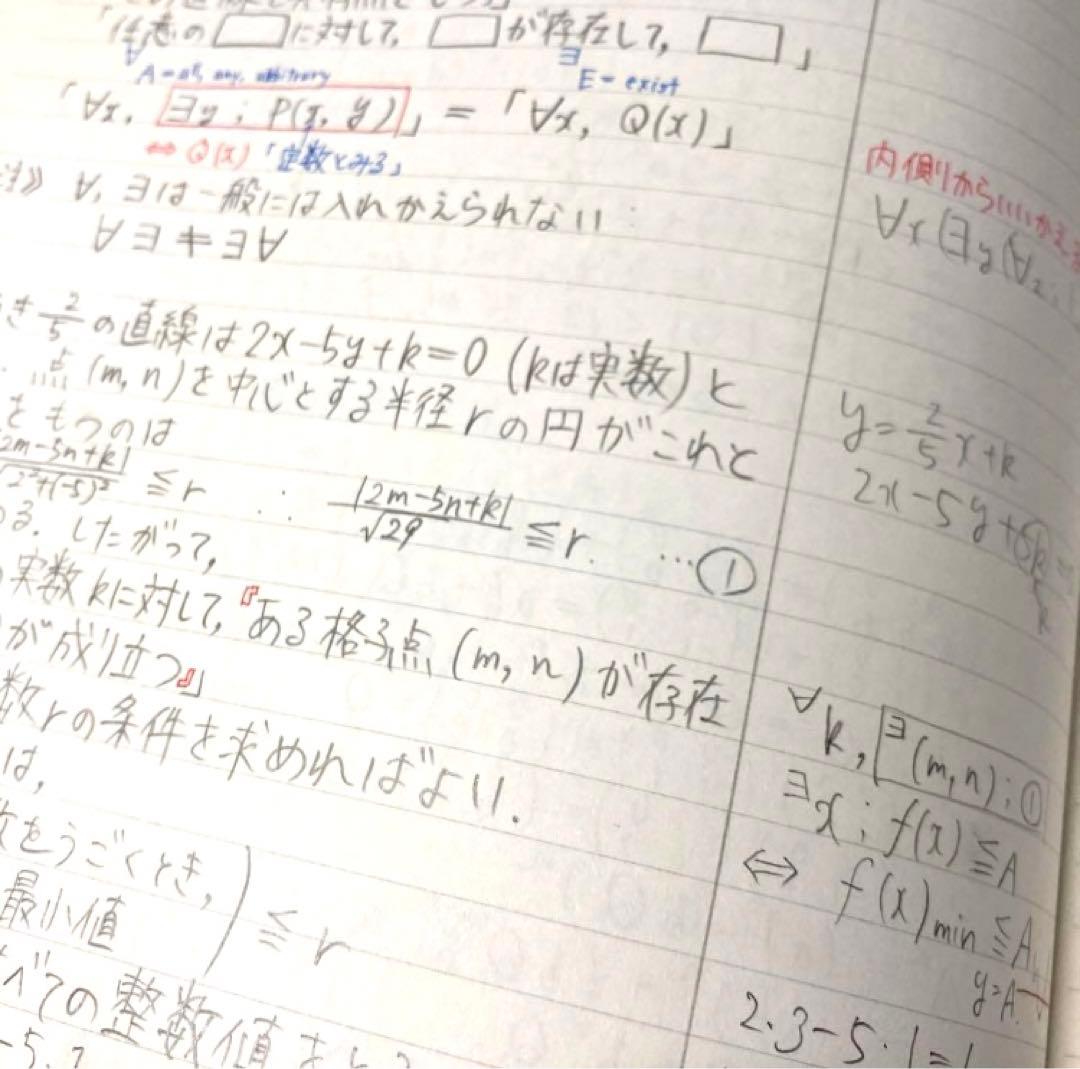 「任意の□に対して, □が存在して, □」
∀ ∃
A = all, any, arbitrary E = exist
「∀x, ∃y ; P(x, y)」=「∀x, Q(x)」
⇔ Q(x) 「定数とみる」
注》 ∀, ∃は一般には入れかえられない :
∀∃≠∃∀
き 2/5 の直線は 2x-5y+k=0 (kは実数) と
点 (m, n) を中心とする半径 r の円がこれと
をもつのは
|2m-5n+k|/√2²+(-5)² ≦ r ∴ |2m-5n+k|/√29 ≦ r. … ①
る. したがって,
実数 k に対して,『ある格子点 (m, n) が存在
が成り立つ』」
数 r の条件を求めればよい.
は,
をうごくとき,
最小値 ) ≦ r
べての整数値をと
内側からいいかえ
∀x(∃y(∀z;
y = 2/5 x + k
2x - 5y + 5k =
k
∀k, ∃(m, n) ; ①
∃x ; f(x) ≦ A
⇔ f(x) min ≦ A
y=A
2・3-5・1=1